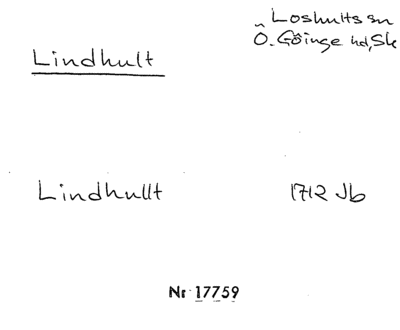 Loshults sn
Ö. Göinge hd, Sk
Lindhult
Lindhullt 1712 Jb
Nr 17759